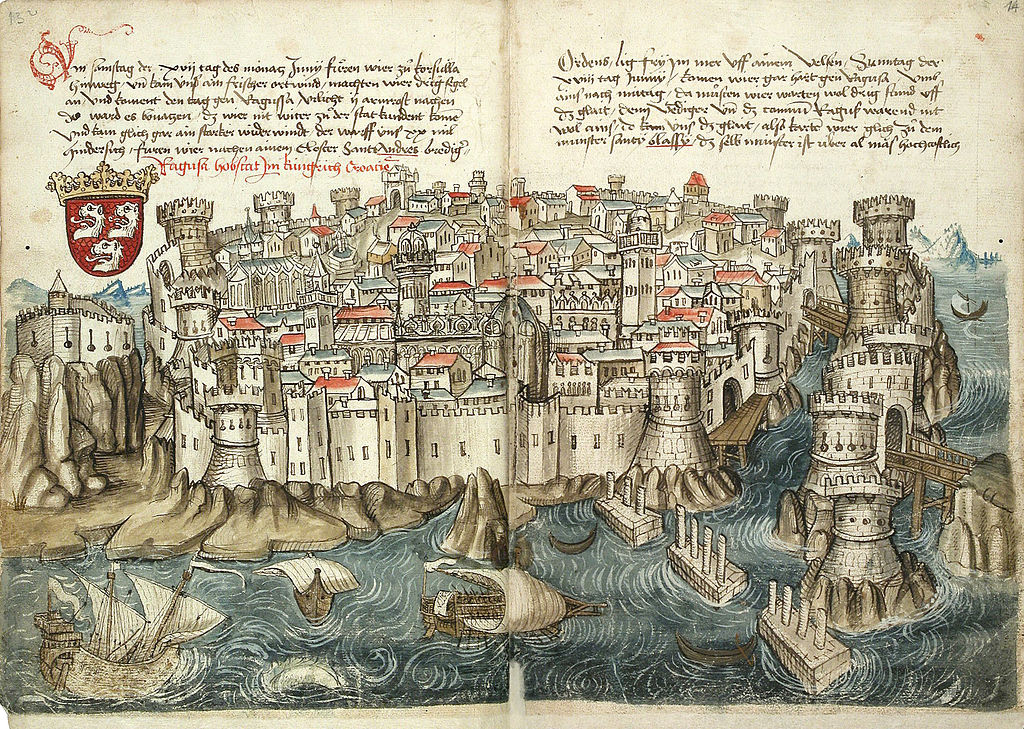 14
An samstag der xvij tag des monatz Juny fůren wier zů korsulla
hinweg vñ kam vnß ain frischer ort wind, machten wier drig segel
an, vnd koment den tag gen Ragussa vilicht ij armrost nachen
Do ward es bonazen, dz wier nit witer zů der stat kundent kome
Vnd kam glich gar ain starker wider wind, der warff vnß xxx mil
hindersich, fůren wier nachen ainem Closter Sant Andres bredig
Ragusa hobstat Jm küngrich Croatie
Ordens, lig fry Jm mer vff ainem velsen, Sunntag der
xviij tag Juny, komen wier gar hart gen Ragusa, vmb
ains nach mittag, da můsten wier warten wol drig stund vff
dz glait, denn Vediger vñ dz comun Ragus warend nit
wol ains, do kam vnß dz glait, also karte wier glich zů dem
münster sancti blassy, dz selb münster ist vber al maß hochzitlich